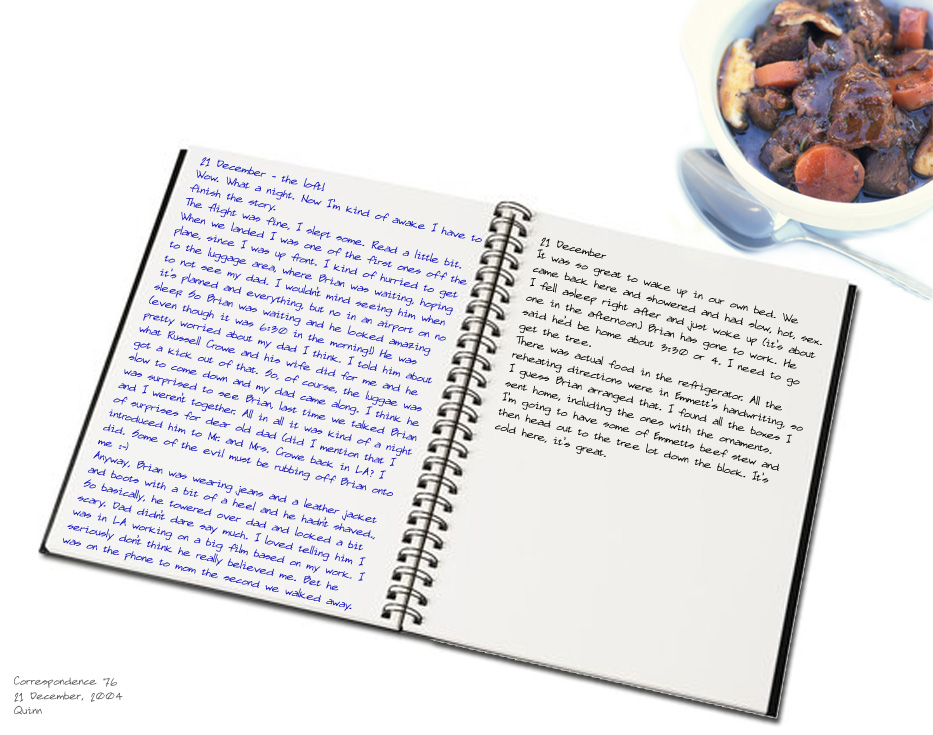 21 December - the loft!
Wow. What a night. Now I'm kind of awake I have to
finish the story.
The flight was fine, I slept some. Read a little bit.
When we landed I was one of the first ones off the
plane, since I was up front. I kind of hurried to get
to the luggage area, where Brian was waiting, hoping
to not see my dad. I wouldn't mind seeing him when
it's planned and everything, but no in an airport on no
sleep. So Brian was waiting and he looked amazing
(even though it was 6:30 in the morning!) He was
pretty worried about my dad I think. I told him about
what Russell Crowe and his wife did for me and he
got a kick out of that. So, of course, the luggae was
slow to come down and my dad came along. I think he
was surprised to see Brian, last time we talked Brian
and I weren't together. All in all it was kind of a night
of surprises for dear old dad (did I mention that I
introduced him to Mr. and Mrs. Crowe back in LA? I
did. Some of the evil must be rubbing off Brian onto
me :-)
Anyway, Brian was wearing jeans and a leather jacket
and boots with a bit of a heel and he hadn't shaved.
So basically, he towered over dad and looked a bit
scary. Dad didn't dare say much. I loved telling him I
was in LA working on a big film based on my work. I
seriously don't think he really believed me. Bet he
was on the phone to mom the second we walked away.
21 December
It was so great to wake up in our own bed. We
came back here and showered and had slow, hot, sex.
I fell asleep right after and just woke up (it's about
one in the afternoon.) Brian has gone to work. He
said he'd be home about 3:30 or 4. I need to go
get the tree.
There was actual food in the refrigerator. All the
reheating directions were in Emmett's handwriting, so
I guess Brian arranged that. I found all the boxes I
sent home, including the ones with the ornaments.
I'm going to have some of Emmetts beef stew and
then head out to the tree lot down the block. It's
cold here, it's great.
Correspondence 76
21 December, 2004
Quinn